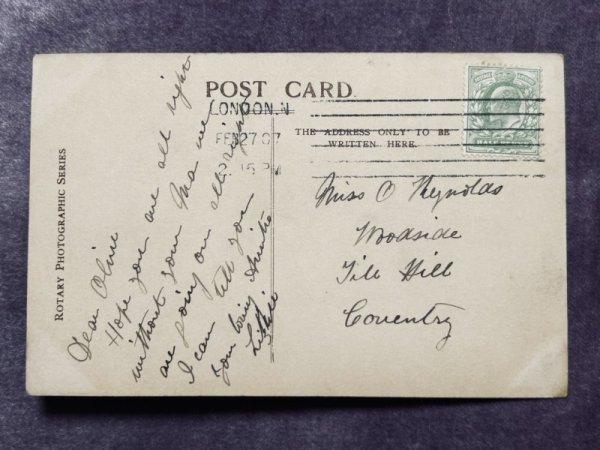 POST CARD.
LONDON. N
FEB 27 07
15 PM
THE ADDRESS ONLY TO BE
WRITTEN HERE.
POSTAGE REVENUE
HALF PENNY
ROTARY PHOTOGRAPHIC SERIES
Dear Olive
Hope you are all right
without your Ma we
are going on allright
I can tell you
Your loving Aunties
Lizzie
Miss O Reynolds
Woodside
Tile Hill
Coventry